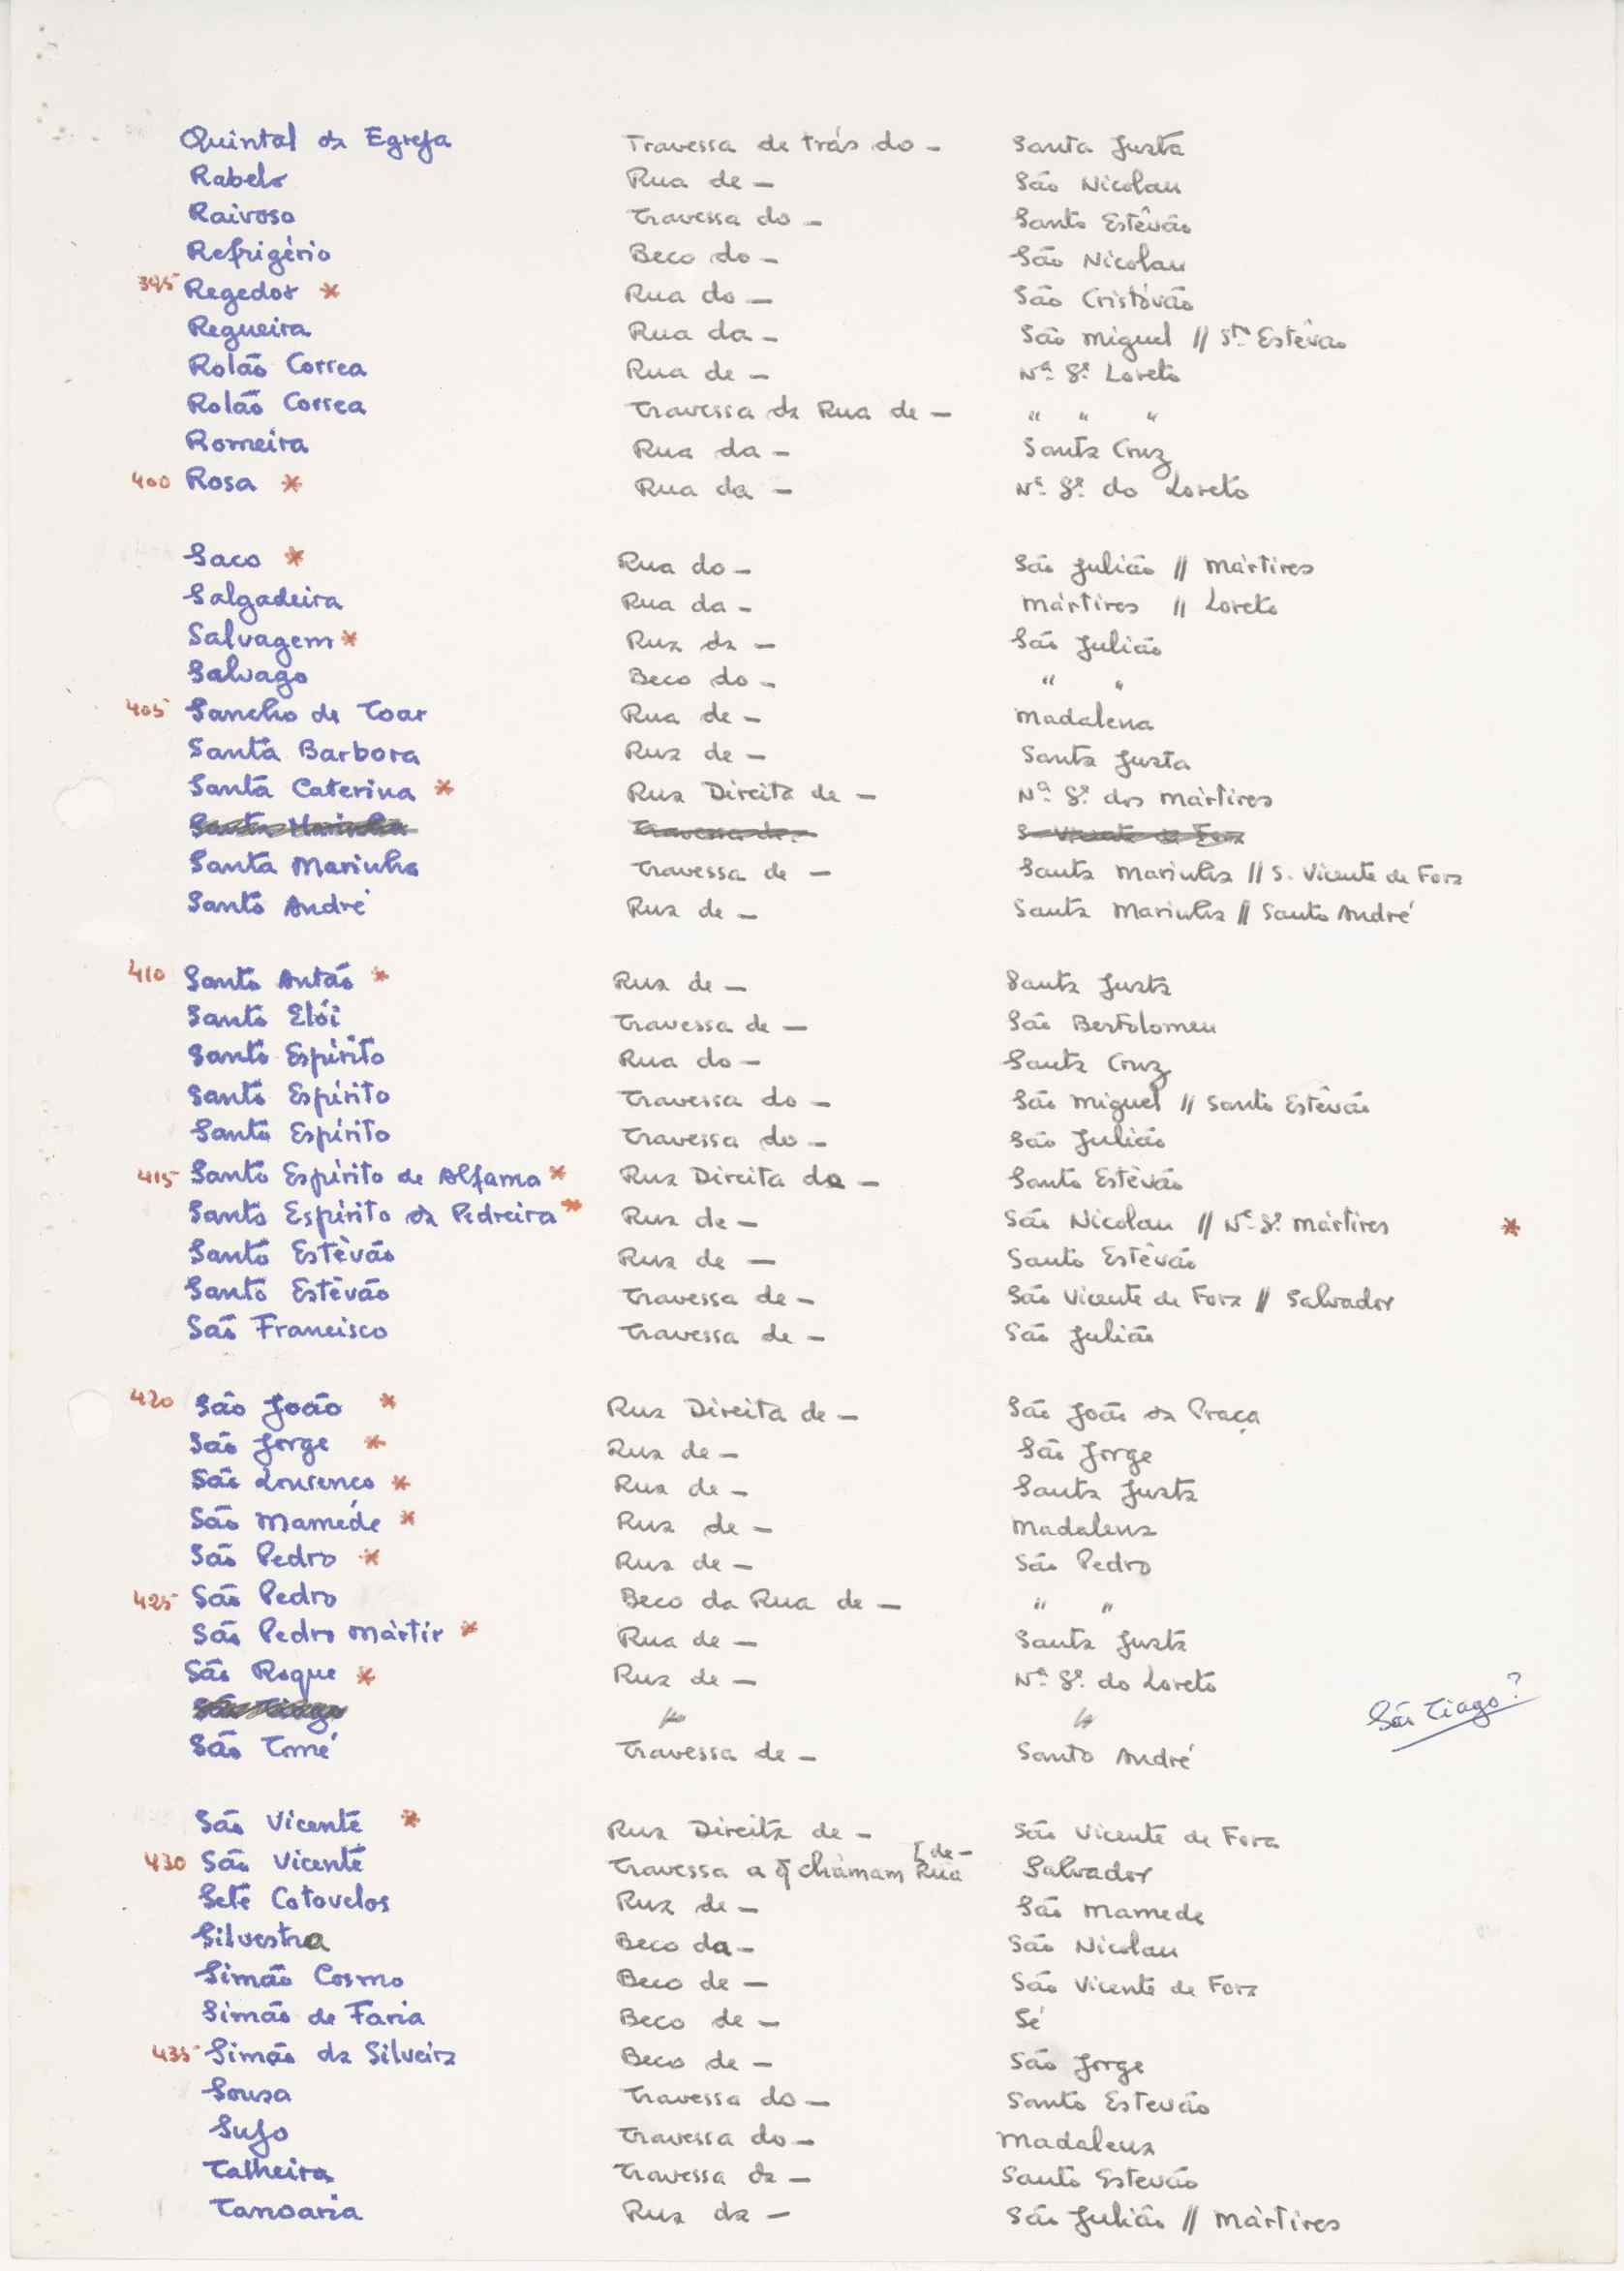 Quintal da Egreja Travessa de trás do - Santa Justa
Rabelo Rua de - São Nicolau
Raivoso Travessa do - Santo Estêvão
Refrigério Beco do - São Nicolau
395 Regedor * Rua do - São Cristóvão
Regueira Rua da - São Miguel // Sto Estêvão
Rolão Correa Rua de - Nª Sª Loreto
Rolão Correa Travessa da Rua de - " " "
Romeira Rua da - Santa Cruz
400 Rosa * Rua da - Nª Sª do Loreto
Saco * Rua do - São Julião // Mártires
Salgadeira Rua da - Mártires // Loreto
Salvagem * Rua da - São Julião
Salvago Beco do - " "
405 Sancho de Toar Rua de - Madalena
Santa Barbora Rua de - Santa Justa
Santa Caterina * Rua Direita de - Nª Sª dos Mártires
Santa Marinha Travessa de - S. Vicente de Fora
Santa Marinha Travessa de - Santa Marinha // S. Vicente de Fora
Santo André Rua de - Santa Marinha // Santo André
410 Santo Antão * Rua de - Santa Justa
Santo Elói Travessa de - São Bertolomeu
Santo Espírito Rua do - Santa Cruz
Santo Espírito Travessa do - São Miguel // Santo Estêvão
Santo Espírito Travessa do - São Julião
415 Santo Espírito de Alfama * Rua Direita do - Santo Estêvão
Santo Espírito da Pedreira * Rua de - São Nicolau // Nª Sª Mártires *
Santo Estêvão Rua de - Santo Estêvão
Santo Estêvão Travessa de - São Vicente de Fora // Salvador
São Francisco Travessa de - São Julião
420 São João * Rua Direita de - São João da Praça
São Jorge * Rua de - São Jorge
São Lourenço * Rua de - Santa Justa
São Mamede * Rua de - Madalena
São Pedro * Rua de - São Pedro
425 São Pedro Beco da Rua de - " "
São Pedro Mártir * Rua de - Santa Justa
São Roque * Rua de - Nª Sª do Loreto
São Tiago São Tiago?
São Tomé Travessa de - Santo André
São Vicente * Rua Direita de - São Vicente de Fora
430 São Vicente Travessa a q̃ chamam Rua [de - Salvador
Sete Cotovelos Rua de - São Mamede
Silvestra Beco da - São Nicolau
Simão Cosmo Beco de - São Vicente de Fora
Simão de Faria Beco de - Sé
435 Simão da Silveira Beco de - São Jorge
Sousa Travessa do - Santo Estevão
Sujo Travessa do - Madalena
Talheira Travessa da - Santo Estevão
Tanoaria Rua da - São Julião // Mártires